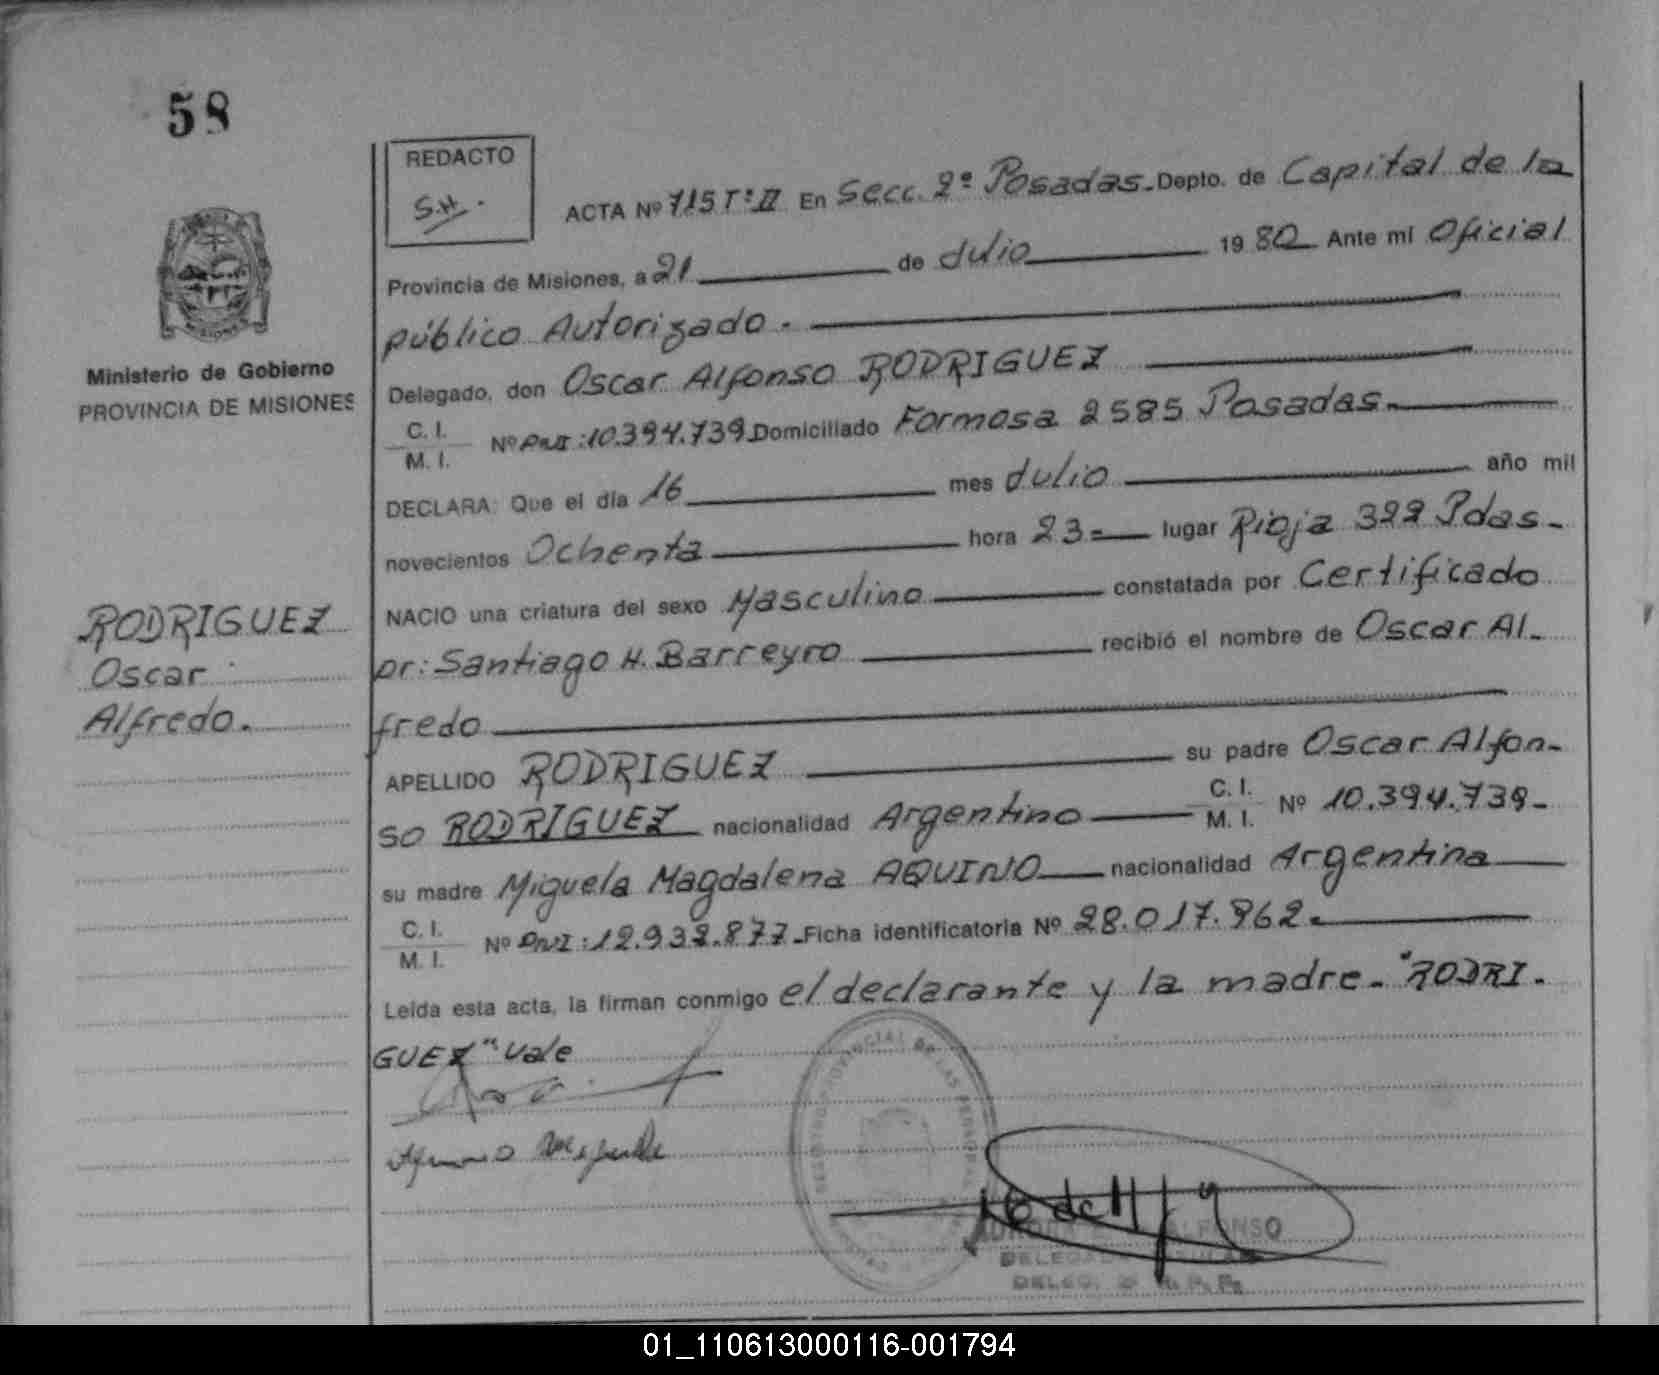 58
REDACTO
S.H.
ACTA Nº 715 Tº II En Secc. 2º Posadas. Depto. de Capital de la
Provincia de Misiones, a 21 de Julio 1980 Ante mi Oficial
público Autorizado.
Ministerio de Gobierno
PROVINCIA DE MISIONES
Delegado, don Oscar Alfonso RODRIGUEZ
C. I.
M. I. Nº DNI: 10.394.739 Domiciliado Formosa 2585 Posadas.
DECLARA: Que el día 16 mes Julio año mil
novecientos Ochenta hora 23 lugar Rioja 322 Pdas.
NACIO una criatura del sexo Masculino constatada por Certificado
RODRIGUEZ
Oscar
Alfredo.
Dr: Santiago H. Barreyro recibió el nombre de Oscar Al-
fredo
APELLIDO RODRIGUEZ su padre Oscar Alfon-
so RODRIGUEZ nacionalidad Argentino C. I. M. I. Nº 10.394.739-
su madre Miguela Magdalena AQUINO nacionalidad Argentina
C. I.
M. I. Nº DNI: 12.932.877- Ficha identificatoria Nº 28.017.962.
Leída esta acta, la firman conmigo el declarante y la madre. "RODRI-
GUEZ" Vale
REGISTRO PROVINCIAL DE LAS PERSONAS
ALFONSO
DELEGADO TITULAR
DELEG. 2ª R. P. P.
01_110613000116-001794